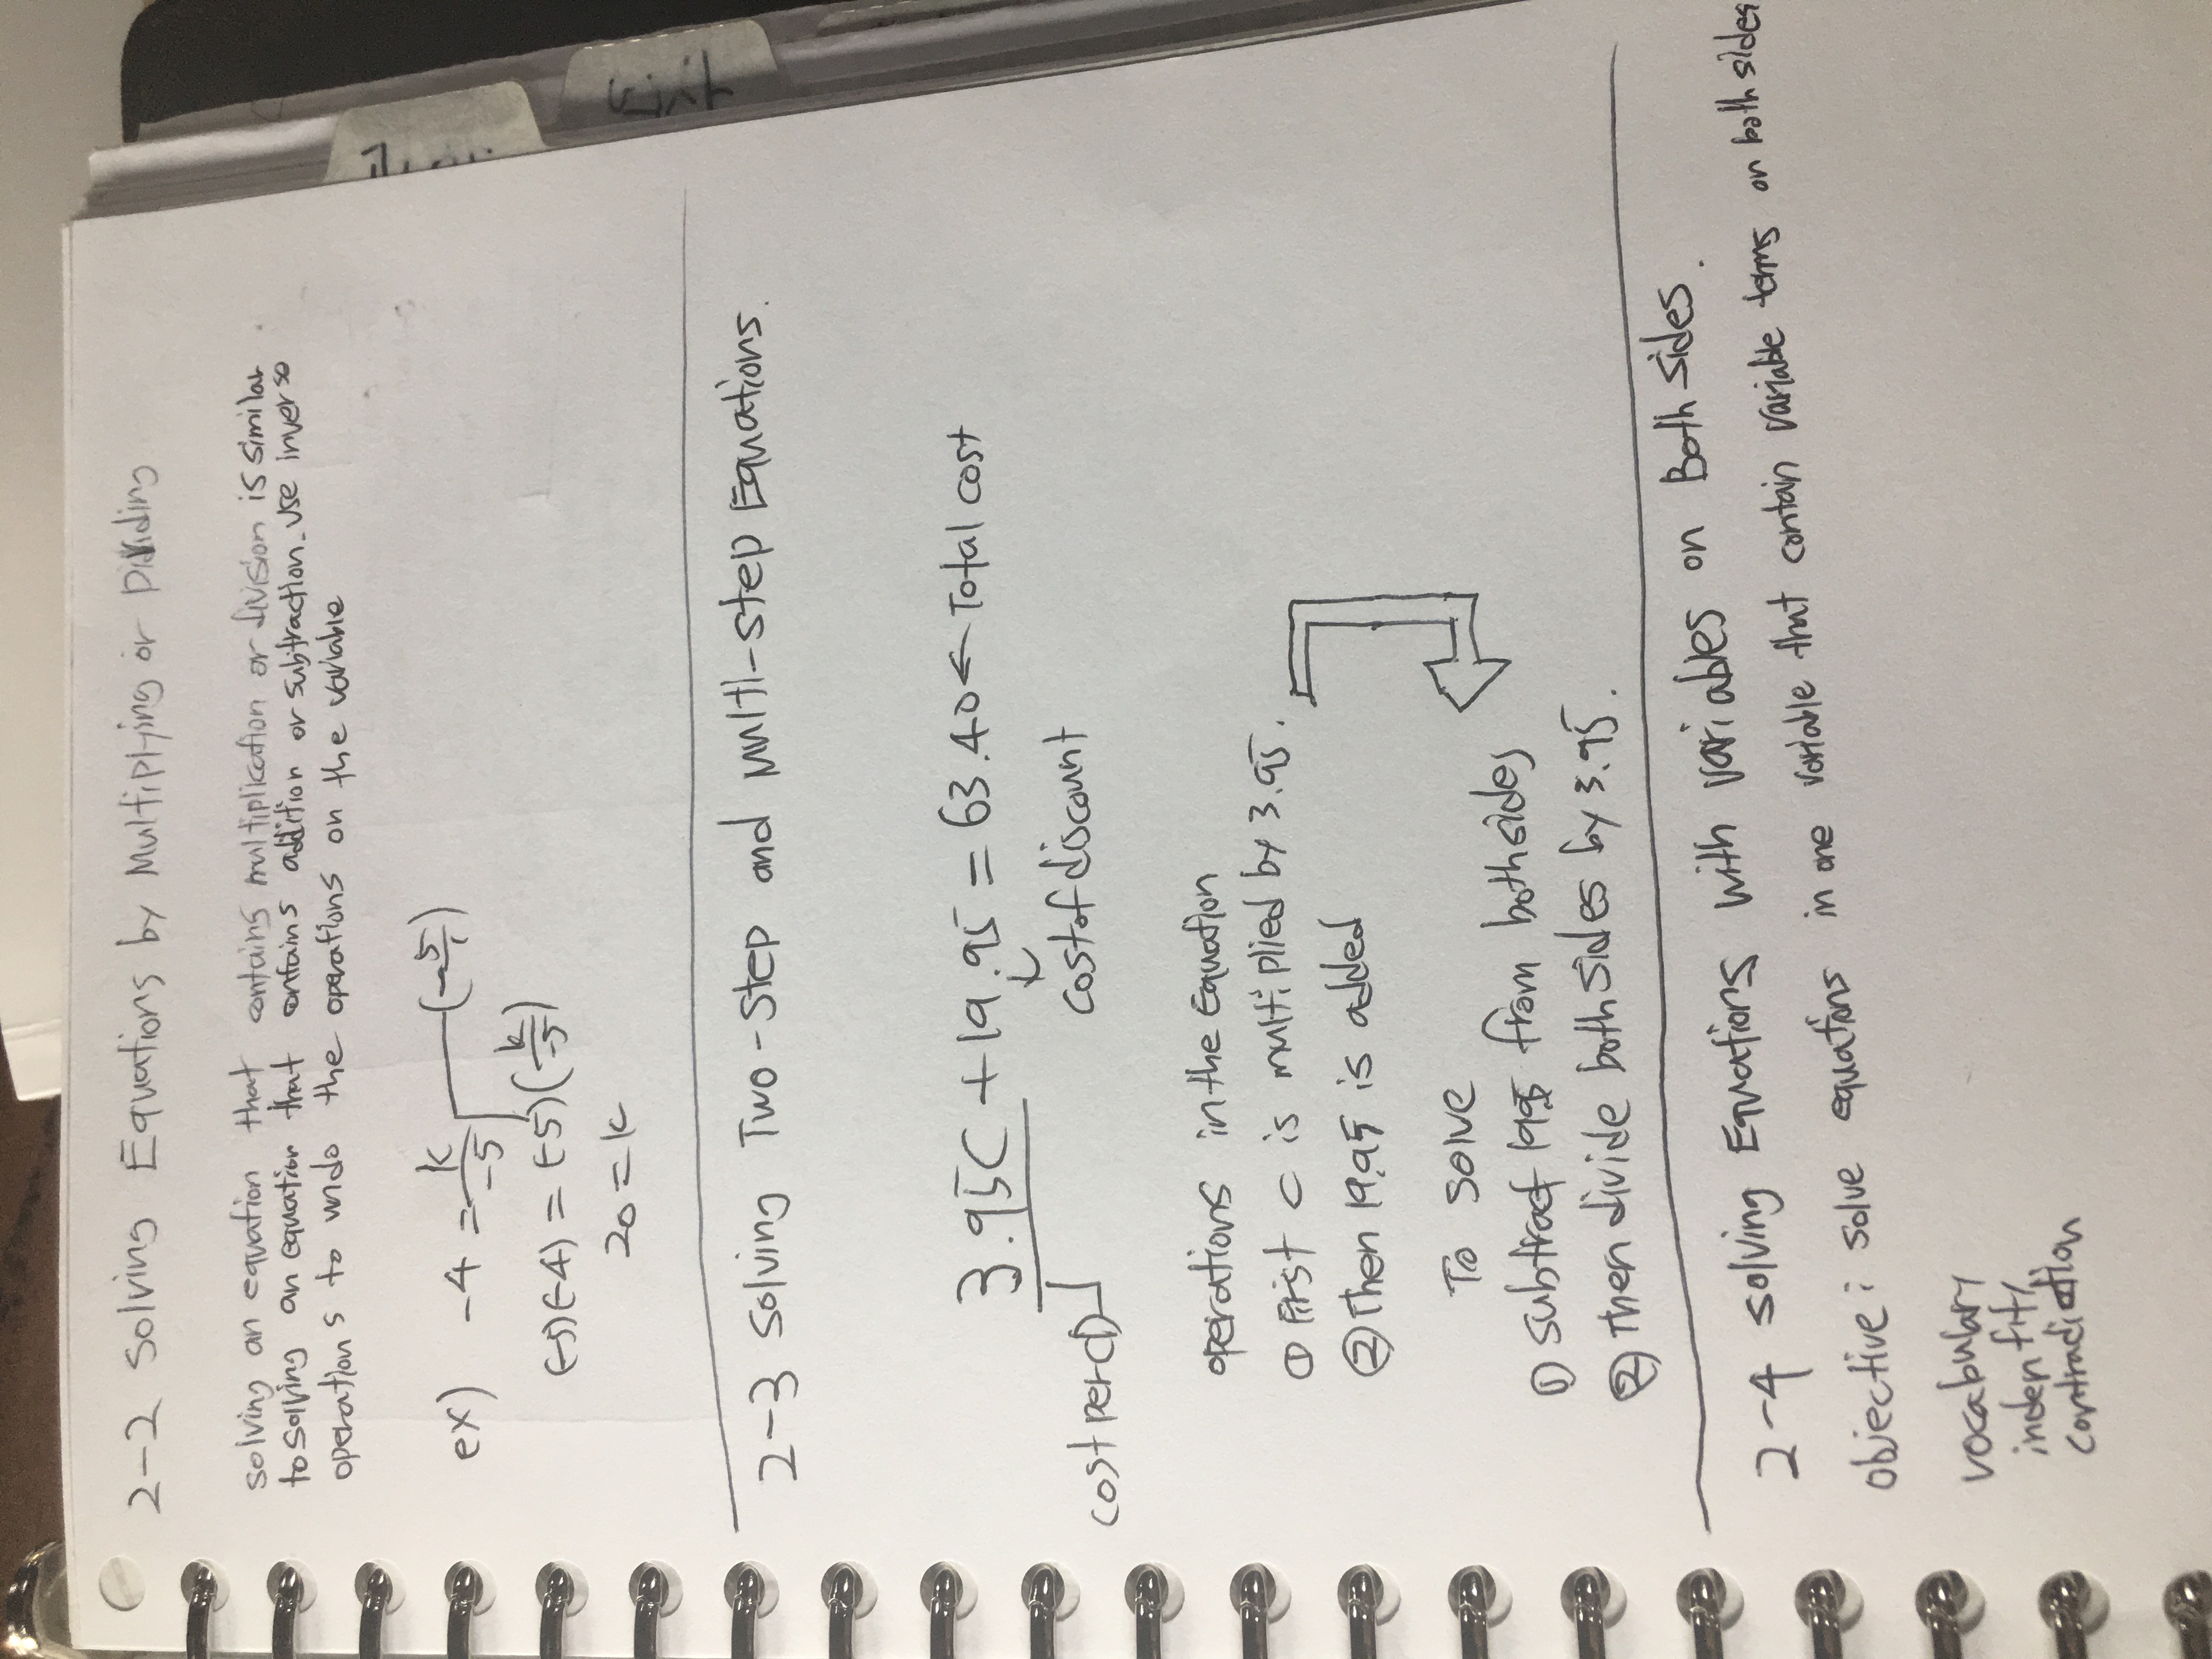 2-2 Solving Equations by Multiplying or Dividing
solving an equation that contains multiplication or division is similar
to solving an equation that contains addition or subtraction. use inverse
operations to undo the operations on the variable
ex) -4 = k/-5 (-5/1)
(-5)(-4) = (-5)(k/-5)
20 = k
2-3 Solving Two-Step and Multi-step Equations.
3.95C + 19.95 = 63.40 ← Total cost
cost of discount
cost per CD
operations in the Equation
① First C is multiplied by 3.95.
② Then 19.95 is added
To solve
① Subtract 19.95 from both sides
② Then divide both sides by 3.95.
2-4 solving Equations with variables on Both sides.
objective: solve equations in one variable that contain variable terms on both sides
vocabulary
indentity
contradiction